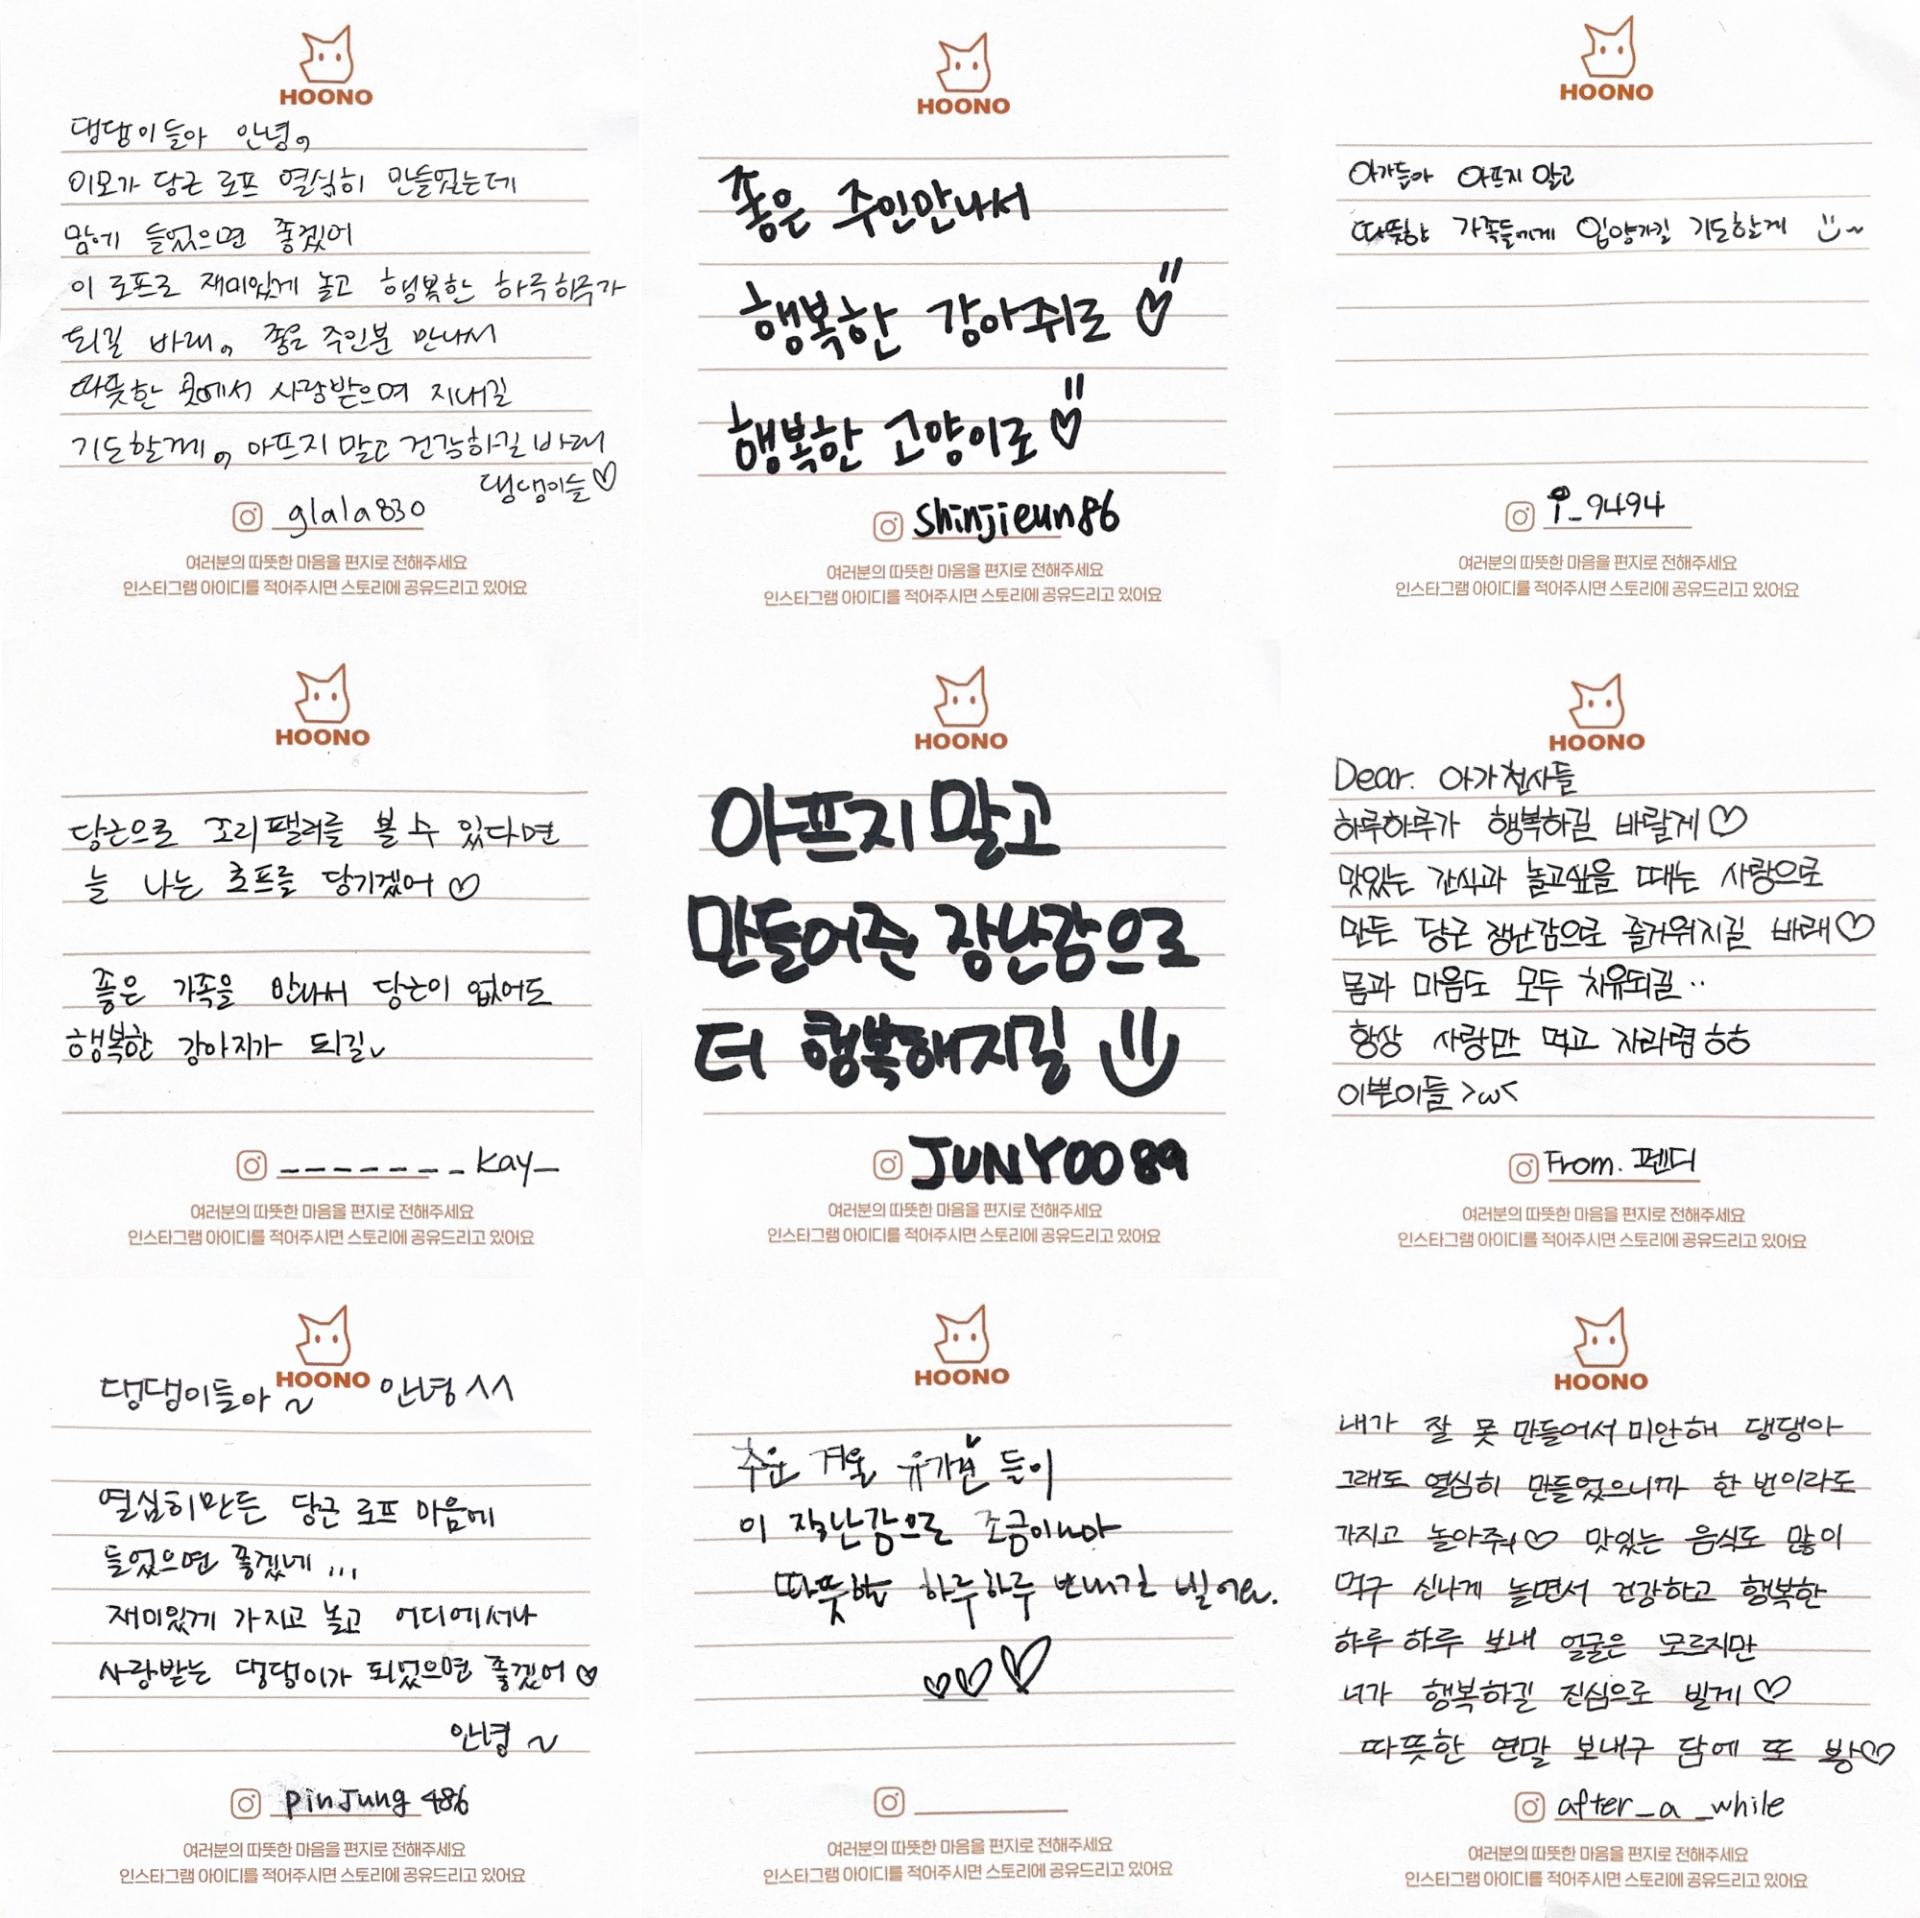 HOONO
댕댕이들아 안녕.
이모가 당근 로프 열심히 만들었는데
맘에 들었으면 좋겠어
이 로프로 재미있게 놀고 행복한 하루하루가
되길 바래. 좋은 주인분 만나서
따뜻한 곳에서 사랑받으며 지내길
기도할께. 아프지 말고 건강하길 바래
댕댕이들♡
glala830
여러분의 따뜻한 마음을 편지로 전해주세요
인스타그램 아이디를 적어주시면 스토리에 공유드리고 있어요
HOONO
좋은 주인만나서
행복한 강아쥐로♡
행복한 고양이로♡
shinjieun86
여러분의 따뜻한 마음을 편지로 전해주세요
인스타그램 아이디를 적어주시면 스토리에 공유드리고 있어요
HOONO
아가들아 아프지 말고
따뜻한 가족들에게 입양가길 기도할게
_9494
여러분의 따뜻한 마음을 편지로 전해주세요
인스타그램 아이디를 적어주시면 스토리에 공유드리고 있어요
HOONO
당근으로 꼬리팰러를 볼 수 있다면
늘 나는 로프를 당기겠어♡
좋은 가족을 만나서 당근이 없어도
행복한 강아지가 되길
_______kay_
여러분의 따뜻한 마음을 편지로 전해주세요
인스타그램 아이디를 적어주시면 스토리에 공유드리고 있어요
HOONO
아프지 말고
만들어준 장난감으로
더 행복해지길
JUNYOO89
여러분의 따뜻한 마음을 편지로 전해주세요
인스타그램 아이디를 적어주시면 스토리에 공유드리고 있어요
HOONO
Dear. 아가천사들
하루하루가 행복하길 바랄게♡
맛있는 간식과 놀고싶을 때는 사랑으로
만든 당근 장난감으로 즐거워지길 바래♡
몸과 마음도 모두 치유되길..
항상 사랑만 먹고 자라렴 ㅎㅎ
이쁜이들 >ω<
From. 펜디
여러분의 따뜻한 마음을 편지로 전해주세요
인스타그램 아이디를 적어주시면 스토리에 공유드리고 있어요
HOONO
댕댕이들아~ 안녕^^
열심히만든 당근 로프 마음에
들었으면 좋겠네...
재미있게 가지고 놀고 어디에서나
사랑받는 댕댕이가 되었으면 좋겠어♡
안녕~
pinJung486
여러분의 따뜻한 마음을 편지로 전해주세요
인스타그램 아이디를 적어주시면 스토리에 공유드리고 있어요
HOONO
추운 겨울 유기견 들이
이 장난감으로 조금이나마
따뜻한 하루하루 보내길 빌어요.
♡♡♡
여러분의 따뜻한 마음을 편지로 전해주세요
인스타그램 아이디를 적어주시면 스토리에 공유드리고 있어요
HOONO
내가 잘 못 만들어서 미안해 댕댕아
그래도 열심히 만들었으니까 한 번이라도
가지고 놀아줘♡ 맛있는 음식도 많이
먹구 신나게 놀면서 건강하고 행복한
하루 하루 보내 얼굴은 모르지만
너가 행복하길 진심으로 빌게♡
따뜻한 연말 보내구 담에 또 봐♡
after_a_while
여러분의 따뜻한 마음을 편지로 전해주세요
인스타그램 아이디를 적어주시면 스토리에 공유드리고 있어요